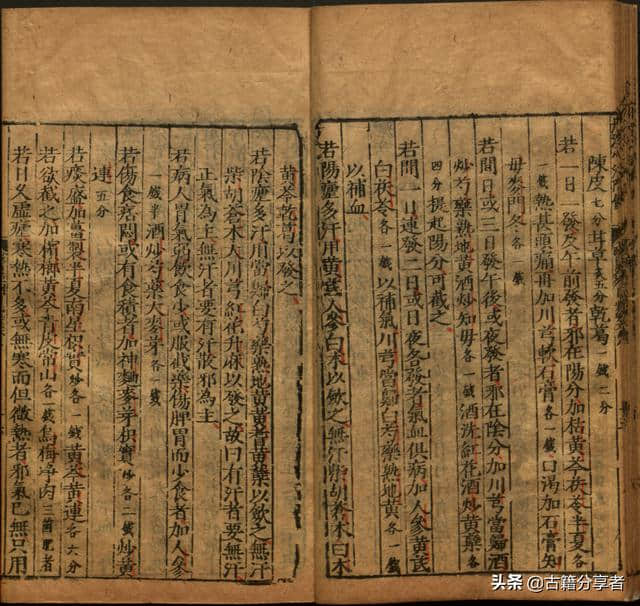 陳皮七分甘草炙五分乾葛一錢二分
若一日一發及午前發者邪在陽分加枯黃芩茯苓半夏各
一錢熱甚頭痛再加川芎軟石膏各一錢口渴加石膏知
母麥門冬各一錢
若間日或三日發午後或夜發者邪在陰分加川芎當歸酒
炒芍藥熟地黃酒炒知母各一錢酒洗紅花酒炒黃蘗各
四分提起陽分可截之
若間一日連發二日或日夜各發者氣血俱病加人參黃芪
白茯苓各一錢以補氣川芎當歸白芍藥熟地黃各一錢
以補血
若陽瘧多汗用黃芪人參白朮以斂之無汗柴胡蒼朮白朮
黃芩乾葛以發之
若陰瘧多汗用當歸白芍藥熟地黃黃耆黃蘗以斂之無汗
柴胡蒼朮川芎紅花升麻以發之故曰有汗者要無汗
正氣為主無汗者要有汗散邪為主
若病人胃氣弱飲食少或服截藥傷脾胃而少食者加人參
一錢半酒炒芍藥大麥芽各一錢
若傷食痞悶或有食積者加神麴麥芽枳實炒各一錢炒黃
連五分
若痰盛加薑製半夏南星枳實炒各一錢黃芩黃連各六分
若欲截之加檳榔黃芩青皮常山各一錢烏梅淨肉三箇肥者
若日久虛瘧寒熱不多或無寒而但微熱者邪氣已無只用
头条 @古籍分享者